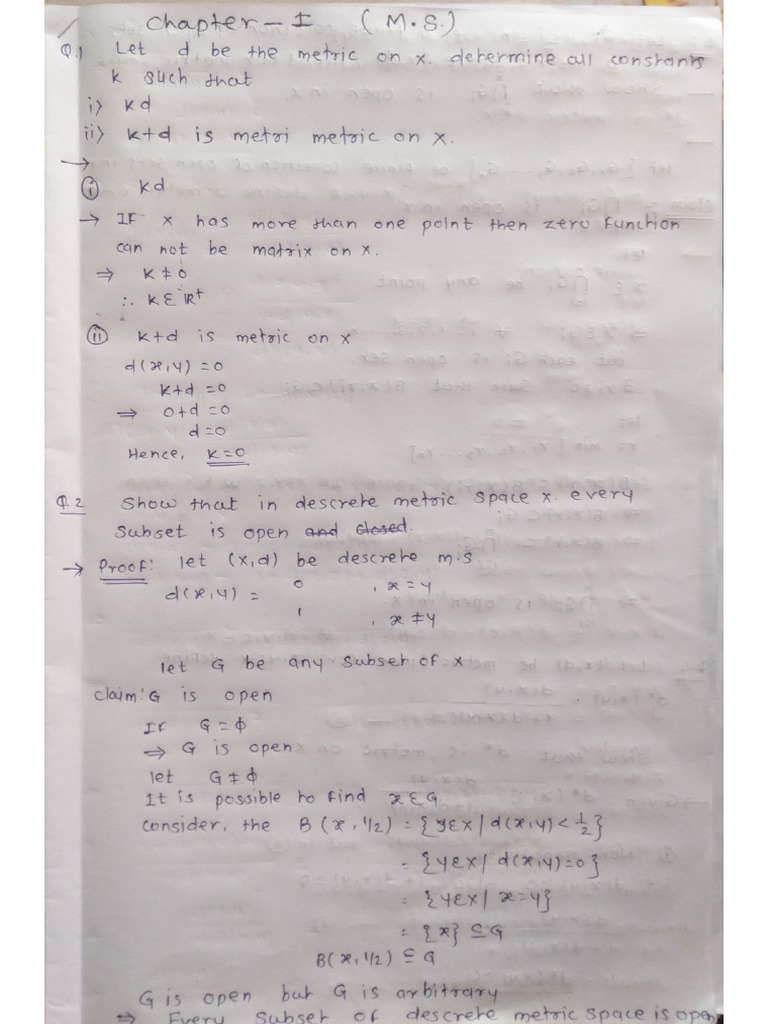 Chapter - I (M.S.)
Q.1 Let d be the metric on x. determine all constants
k such that
i) kd
ii) k+d is metri metric on x.
→
(i) kd
→ If x has more than one point then zero function
can not be matrix on x.
⇒ k ≠ 0
∴ k ε IR⁺
(ii) k+d is metric on x
d(x,y) = 0
k+d = 0
⇒ 0+d = 0
d = 0
Hence, k=0
Q.2 Show that in descrete metric space x. every
subset is open and closed.
→ Proof: let (x,d) be descrete m.s
d(x,y) = 0 , x = y
1 , x ≠ y
let G be any subset of x
claim: G is open
If G = ϕ
⇒ G is open
let G ≠ ϕ
It is possible to find x ε G
consider, the B(x, 1/2) = {y ε X / d(x,y) < 1/2}
= {y ε X / d(x,y) = 0}
= {y ε X / x = y}
= {x} ⊆ G
B(x, 1/2) ⊆ G
G is open but G is arbitrary
⇒ Every subset of descrete metric space is open